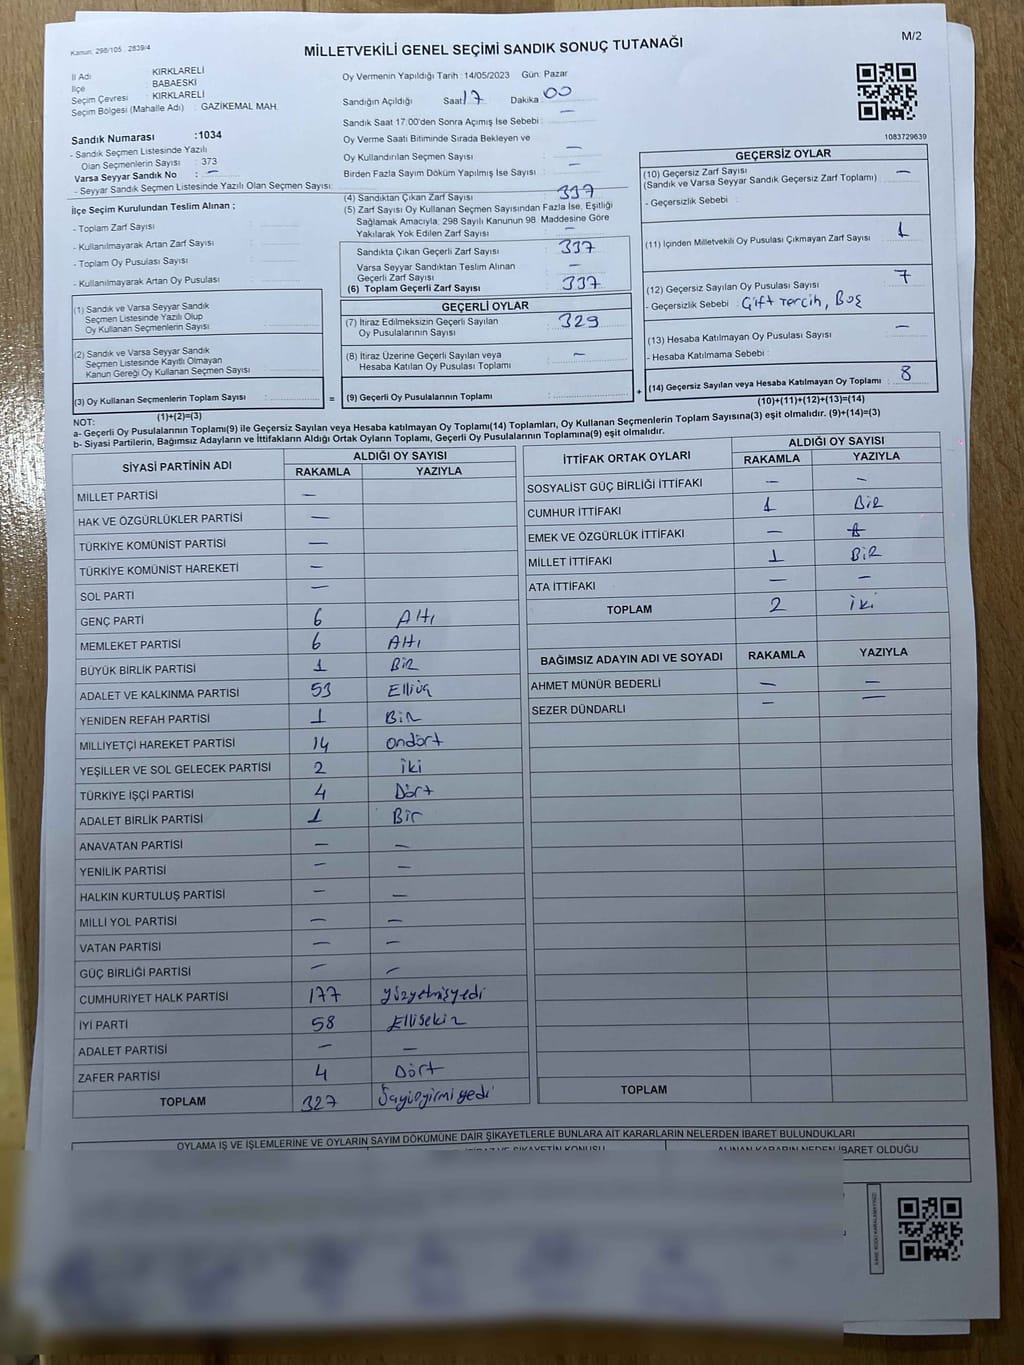 Kanun: 298/105 , 2839/4
MİLLETVEKİLİ GENEL SEÇİMİ SANDIK SONUÇ TUTANAĞI
M/2
İl Adı : KIRKLARELİ
İlçe : BABAESKİ
Seçim Çevresi : KIRKLARELİ
Seçim Bölgesi (Mahalle Adı) : GAZİKEMAL MAH.
Sandık Numarası :1034
- Sandık Seçmen Listesinde Yazılı
Olan Seçmenlerin Sayısı : 373
Varsa Seyyar Sandık No : —
- Seyyar Sandık Seçmen Listesinde Yazılı Olan Seçmen Sayısı:
Oy Vermenin Yapıldığı Tarih :14/05/2023 Gün: Pazar
Sandığın Açıldığı Saat 17 Dakika : 00
Sandık Saat 17:00'den Sonra Açımış İse Sebebi : —
Oy Verme Saati Bitiminde Sırada Bekleyen ve
Oy Kullandırılan Seçmen Sayısı : —
Birden Fazla Sayım Döküm Yapılmış İse Sayısı : —
1083729639
İlçe Seçim Kurulundan Teslim Alınan ;
- Toplam Zarf Sayısı :
- Kullanılmayarak Artan Zarf Sayısı :
- Toplam Oy Pusulası Sayısı :
- Kullanılmayarak Artan Oy Pusulası :
(1) Sandık ve Varsa Seyyar Sandık
Seçmen Listesinde Yazılı Olup
Oy Kullanan Seçmenlerin Sayısı :
(2) Sandık ve Varsa Seyyar Sandık
Seçmen Listesinde Kayıtlı Olmayan
Kanun Gereği Oy Kullanan Seçmen Sayısı :
(3) Oy Kullanan Seçmenlerin Toplam Sayısı :
(1)+(2)=(3)
(4) Sandıktan Çıkan Zarf Sayısı : 337
(5) Zarf Sayısı Oy Kullanan Seçmen Sayısından Fazla İse, Eşitliği
Sağlamak Amacıyla, 298 Sayılı Kanunun 98. Maddesine Göre
Yakılarak Yok Edilen Zarf Sayısı : —
Sandıkta Çıkan Geçerli Zarf Sayısı : 337
Varsa Seyyar Sandıktan Teslim Alınan
Geçerli Zarf Sayısı : —
(6) Toplam Geçerli Zarf Sayısı : 337
GEÇERLİ OYLAR
(7) İtiraz Edilmeksizin Geçerli Sayılan
Oy Pusulalarının Sayısı : 329
(8) İtiraz Üzerine Geçerli Sayılan veya
Hesaba Katılan Oy Pusulası Toplamı : —
= (9) Geçerli Oy Pusulalarının Toplamı : +
GEÇERSİZ OYLAR
(10) Geçersiz Zarf Sayısı : —
(Sandık ve Varsa Seyyar Sandık Geçersiz Zarf Toplamı)
- Geçersizlik Sebebi :
(11) İçinden Milletvekili Oy Pusulası Çıkmayan Zarf Sayısı : 1
(12) Geçersiz Sayılan Oy Pusulası Sayısı : 7
- Geçersizlik Sebebi : Çift Tercih, Boş
(13) Hesaba Katılmayan Oy Pusulası Sayısı : —
- Hesaba Katılmama Sebebi :
(14) Geçersiz Sayılan veya Hesaba Katılmayan Oy Toplamı : 8
(10)+(11)+(12)+(13)=(14)
NOT:
a- Geçerli Oy Pusulalarının Toplamı(9) ile Geçersiz Sayılan veya Hesaba katılmayan Oy Toplamı(14) Toplamları, Oy Kullanan Seçmenlerin Toplam Sayısına(3) eşit olmalıdır. (9)+(14)=(3)
b- Siyasi Partilerin, Bağımsız Adayların ve İttifakların Aldığı Ortak Oyların Toplamı, Geçerli Oy Pusulalarının Toplamına(9) eşit olmalıdır.
SİYASİ PARTİNİN ADI ALDIĞI OY SAYISI
RAKAMLA YAZIYLA
MİLLET PARTİSİ —
HAK VE ÖZGÜRLÜKLER PARTİSİ —
TÜRKİYE KOMÜNİST PARTİSİ —
TÜRKİYE KOMÜNİST HAREKETİ —
SOL PARTİ —
GENÇ PARTİ 6 Altı
MEMLEKET PARTİSİ 6 Altı
BÜYÜK BİRLİK PARTİSİ 1 Bir
ADALET VE KALKINMA PARTİSİ 53 Elliüç
YENİDEN REFAH PARTİSİ 1 Bir
MİLLİYETÇİ HAREKET PARTİSİ 14 ondört
YEŞİLLER VE SOL GELECEK PARTİSİ 2 iki
TÜRKİYE İŞÇİ PARTİSİ 4 Dört
ADALET BİRLİK PARTİSİ 1 Bir
ANAVATAN PARTİSİ — —
YENİLİK PARTİSİ — —
HALKIN KURTULUŞ PARTİSİ — —
MİLLİ YOL PARTİSİ — —
VATAN PARTİSİ — —
GÜÇ BİRLİĞİ PARTİSİ — —
CUMHURİYET HALK PARTİSİ 177 yüzyetmişyedi
İYİ PARTİ 58 Ellisekiz
ADALET PARTİSİ — —
ZAFER PARTİSİ 4 Dört
TOPLAM 327
İTTİFAK ORTAK OYLARI ALDIĞI OY SAYISI
RAKAMLA YAZIYLA
SOSYALİST GÜÇ BİRLİĞİ İTTİFAKI — —
CUMHUR İTTİFAKI 1 Bir
EMEK VE ÖZGÜRLÜK İTTİFAKI —
MİLLET İTTİFAKI 1 Bir
ATA İTTİFAKI — —
TOPLAM 2 iki
BAĞIMSIZ ADAYIN ADI VE SOYADI RAKAMLA YAZIYLA
AHMET MÜNÜR BEDERLİ — —
SEZER DÜNDARLI — —
TOPLAM
OYLAMA İŞ VE İŞLEMLERİNE VE OYLARIN SAYIM DÖKÜMÜNE DAİR ŞİKAYETLERLE BUNLARA AİT KARARLARIN NELERDEN İBARET BULUNDUKLARI
ALINAN KARARIN NEDEN İBARET OLDUĞU